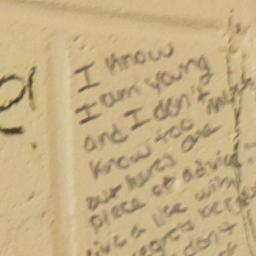 I know
I am young
and I don't
know too much
but here's one
piece of advice:
live a life with
regrets
don't